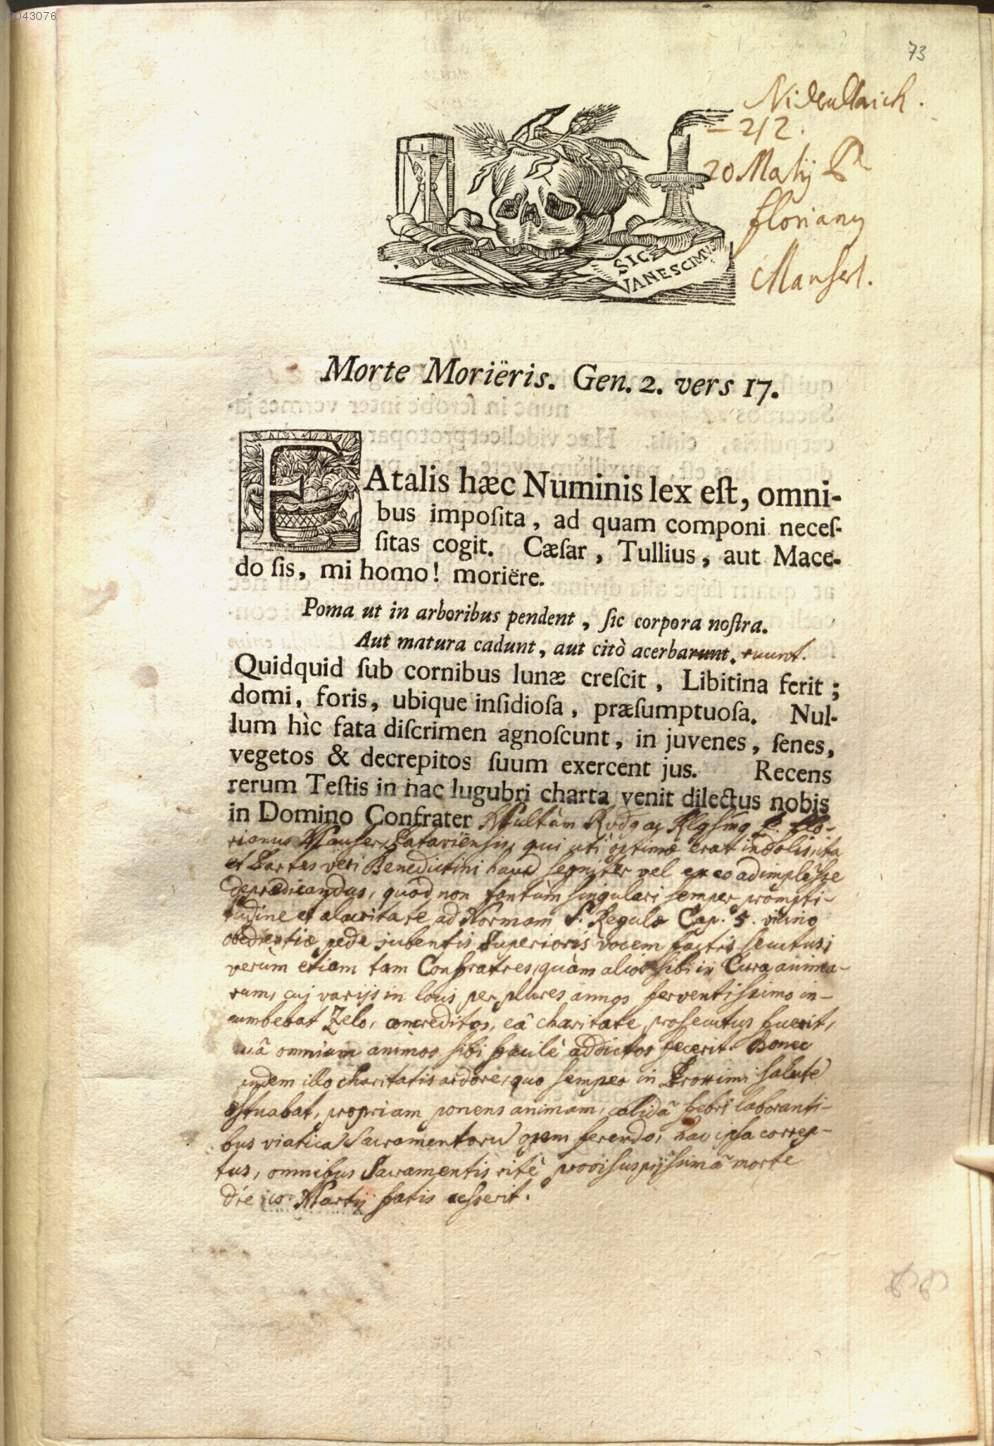 043076
73
Niderllaich.
- 212.
20 Martij P.
Floriany
Manserl.
SIC
VANESCIMUS
Morte Moriëris. Gen. 2. vers 17.
FAtalis hæc Numinis lex est, omni-
bus imposita, ad quam componi neces-
sitas cogit. Cæsar, Tullius, aut Mace-
do sis, mi homo! moriëre.
Poma ut in arboribus pendent, sic corpora nostra.
Aut matura cadunt, aut citò acerbarunt. ruunt.
Quidquid sub cornibus lunæ crescit, Libitina ferit;
domi, foris, ubique insidiosa, præsumptuosa. Nul-
lum hìc fata discrimen agnoscunt, in juvenes, senes,
vegetos & decrepitos suum exercent jus. Recens
rerum Testis in hac lugubri charta venit dilectus nobis
in Domino Confrater Multùm Rvdq ac Rlgsmq P. Flo-
rianus Manserl Patavïensis, qui uti optimæ erat indolis, ita
et Partes veri Benedictini haud segniter vel ex eo adimplesse
deprædicandus, quòd non tantum singulari semper prompti-
tudine et alacritate ad Normam S. Regulæ Cap. 5. vicino
obedientiæ pede jubentis Superioris vocem factis secutus;
verùm etiam tam Confratres, quàm alios sibi in Cura anima-
rum, cuj varijs in locis per plures annos ferventissimo in-
cumbebat Zelo, concreditos, eâ charitate prosecutus fuerit,
quâ omnium animos sibi facilè addictos fecerit. Donec
eodem illo charitatis ardore, quo semper in Proximi salute
æstuabat, propriam ponens animam, calidâ febri laboranti-
bus viatica Sacramentorũ opem ferendo, hac ipsa correp-
tus, omnibus Sacramentis ritè provisus pijssimâ morte
die 10 Martij fatis cesserit.